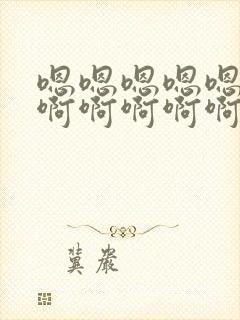 嗯嗯嗯嗯嗯
啊啊啊啊啊
冀岩